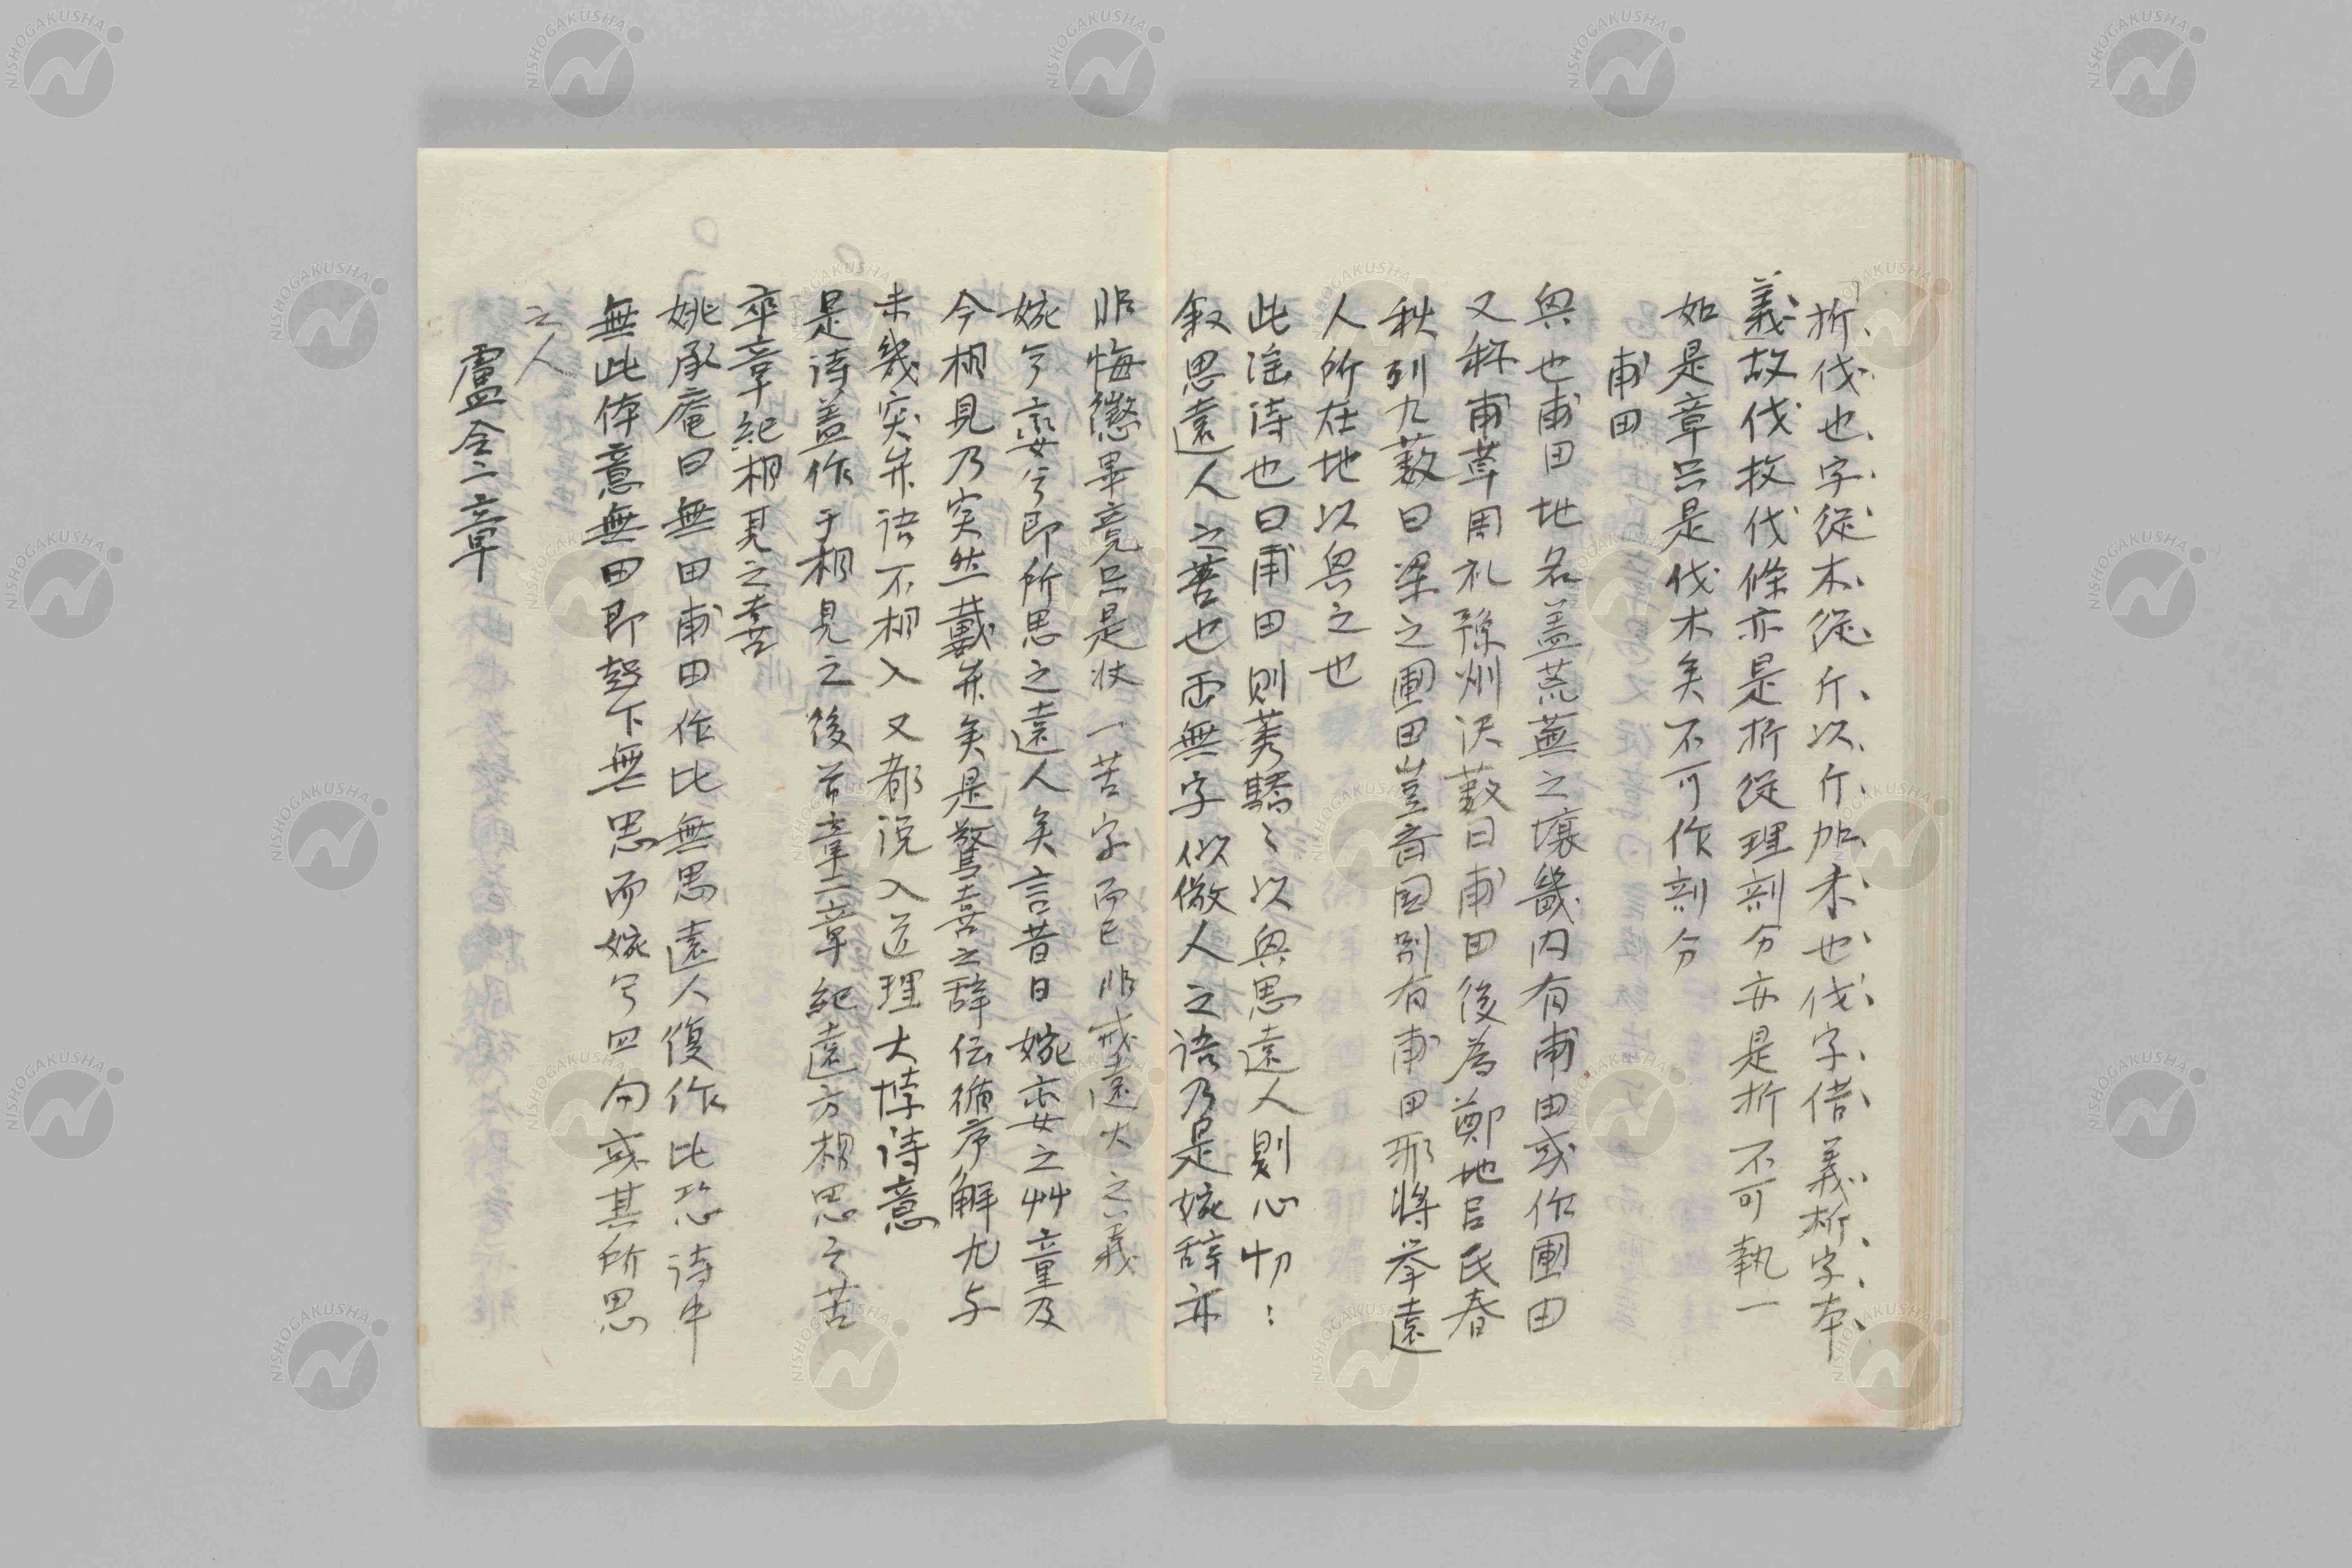 折伐也字從木從斤以斤加木也伐字借義析字本
義故伐伐枚伐條亦是折從理剖分亦是折不可執一
如是章只是伐木矣不可作剖分
甫田
興也甫田地名盖荒蕪之壤畿内有甫田或作圃田
又称甫草周礼豫州沢薮曰甫田後為鄭地呂氏春
秋列九薮曰梁之圃田豈斉国別有甫田邪将挙遠
人所在地以興之也
此滛诗也曰甫田則莠驕〻以興思遠人則心忉〻
叙思遠人之苦也而無字似儆人之语乃是婉辞亦
非悔懲畢竟只是状一苦字而已非戒遠大之義
婉兮孌兮即所思之遠人矣言昔日婉孌之艸童及
今相見乃突然戴弁矣是驚喜之辞伝循序解尤与
未幾突弁语不相入又都说入道理大悖诗意
是诗盖作于相見之後首章二章紀遠方相思之苦
卒章紀相見之喜
姚承庵曰無田甫田作比無思遠人復作比恐诗中
無此体意無田即起下無思而婉兮四句或其所思
之人
盧令二章
NISHOGAKUSHA